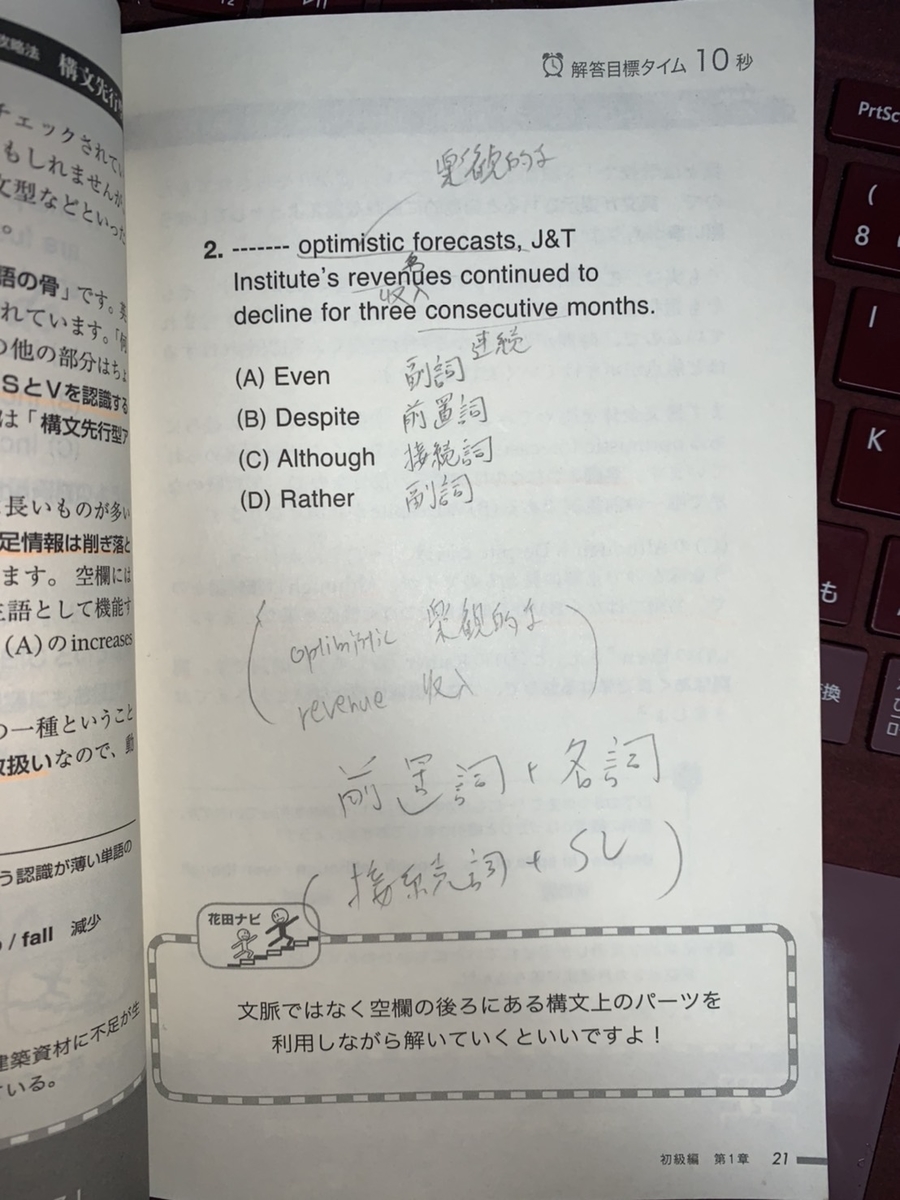 攻略法 構文先行
チェックされてい
もしれませんが、
文型などといった
。
語の骨」です。英
れています。「何
の他の部分はちょ
SとVを認識する
は「構文先行型ア
長いものが多い
足情報は削ぎ落と
ます。空欄には
主語として機能す
(A)のincreases
の一種ということ
扱いなので、動
う認識が薄い単語の
/ fall 減少
建築資材に不足が生
ている。
解答目標タイム 10 秒
楽観的な
2. ------- optimistic forecasts, J&T
Institute's revenues continued to
収入
decline for three consecutive months.
連続
(A) Even 副詞
(B) Despite 前置詞
(C) Although 接続詞
(D) Rather 副詞
optimistic 楽観的な
revenue 収入
前置詞+名詞
(接続詞+SV)
花田ナビ
文脈ではなく空欄の後ろにある構文上のパーツを
利用しながら解いていくといいですよ!
初級編 第1章 21
PrtSc
(
8
I
K
も
変換